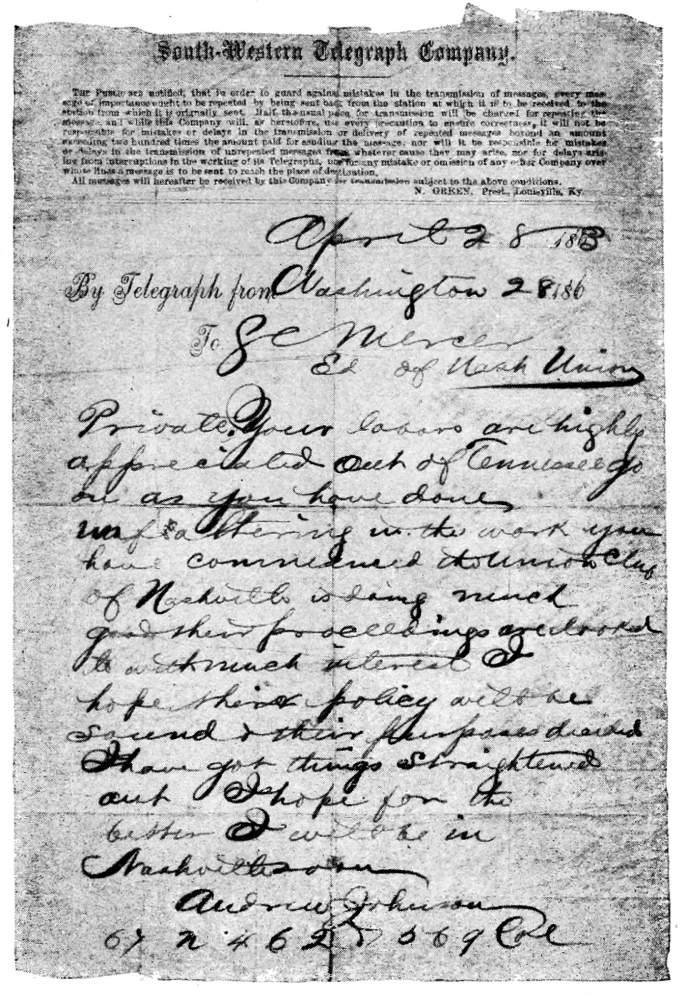 South-Western Telegraph Company.
THE PUBLIC are notified, that in order to guard against mistakes in the transmission of messages, every mes-
sage of importance ought to be repeated by being sent back from the station at which it is to be received, to the
station from which it is originally sent. Half the usual price for transmission will be charged for repeating the
message, and while this Company will, as heretofore, use every precaution to ensure correctness, it will not be
responsible for mistakes or delays in the transmission or delivery of repeated messages beyond an amount
exceeding two hundred times the amount paid for sending the message, nor will it be responsible for mistakes
or delays in the transmission of unrepeated messages from whatever cause they may arise, nor for delays aris-
ing from interruptions in the working of its Telegraphs, nor for any mistake or omission of any other Company over
whose lines a message is to be sent to reach the place of destination.
All messages will hereafter be received by this Company for transmission subject to the above conditions.
N. GREEN, Prest., Louisville, Ky.
April 28 1863
By Telegraph from Washington 28 186
To S C Mercer
Ed of Nash Union
Private. Your labors are highly
appreciated out of Tennessee go
on as you have done
unfaltering in the work you
have commenced the Union Club
of Nashville is doing much
good their proceedings are looked
to with much interest I
hope their policy will be
sound & their purposes decided
I have got things straightened
out I hope for the
better I will be in
Nashville soon
Andrew Johnson
67 569 Col